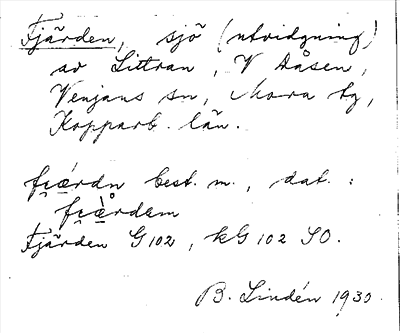 Fjärden, sjö (utvidgning)
av Littran, V Aåsen,
Venjans sn, Mora tg,
Kopparb. län.
fi̯ǽrdn best. m., dat. :
fi̯æ̀rdəm
Fjärden G 102, kG 102 SO.
B. Lindén 1930.